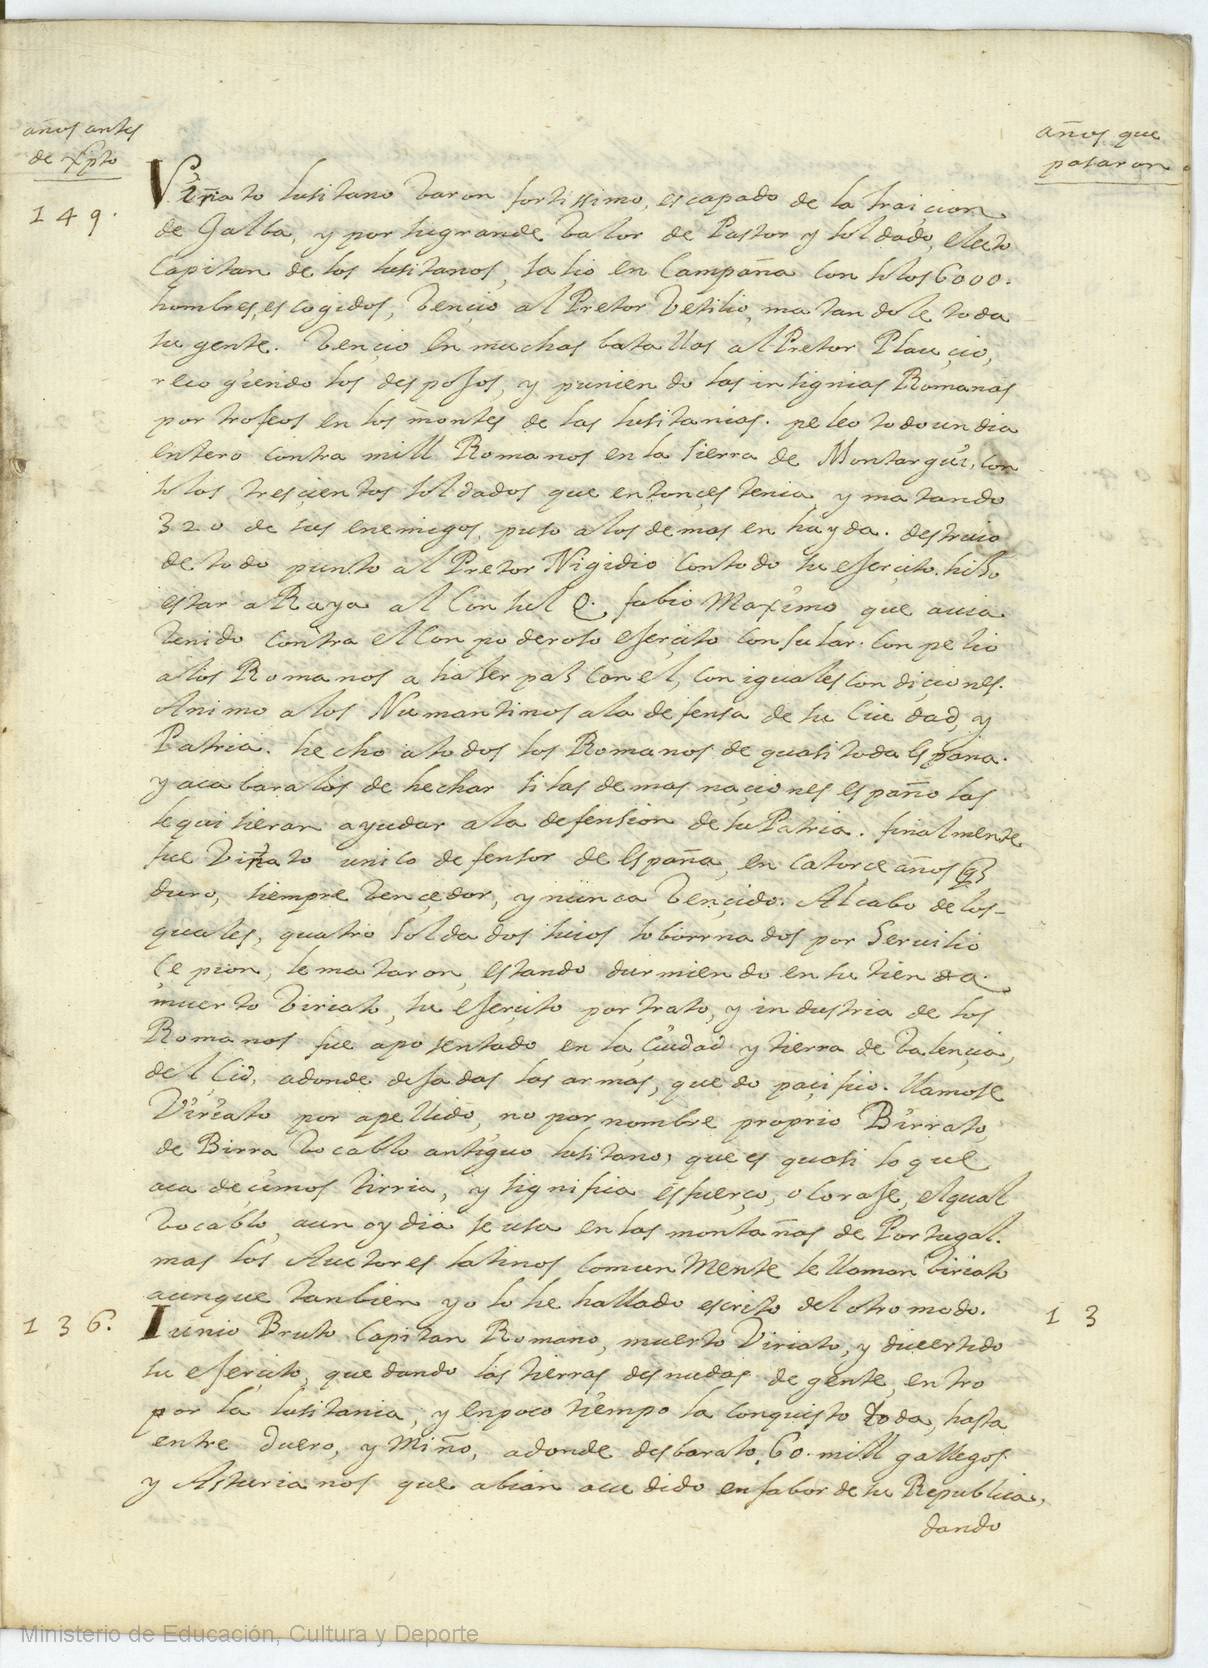 años antes
de Xpto
años que
pasaron
149.
Viriato lusitano baron fortissimo, escapado de la traicion
de Galba, y por su grande balor de Pastor y soldado, electo
Capitan de los lusitanos, salio en Campaña con solos 6000.
hombres, escogidos, bençio al Pretor Vetilio, matandole toda
su gente. Vencio en muchas batallas al Pretor Plauçio,
recogiendo los despojos, y puniendo las insignias Romanas
por trofeos en los montes de las lusitanias. peleo todo un dia
entero contra mill Romanos en la sierra de Montargui, con
solos tresçientos soldados que entonçes tenia, y matando
320 de sus enemigos, puso a los demas en huyda. destruio
de todo punto al Pretor Nigidio con todo su esercito. hiso
estar a Raya al Consul Q. fabio Maximo que auia
benido contra el con poderoso eserçito consular. conpelio
a los Romanos a haser pas con el, con iguales condiciones.
Animo a los Numantinos a la defensa de su Ciudad, y
Patria. hecho a todos los Romanos de quasi toda España.
y acabaralos de hechar si las demas naçiones españolas
le quisieran ayudar a la defension de su Patria. finalmente
fue Viriato unico defensor de España, en catorce años q̃
duro, siempre bençedor, y nunca bençido. Al cabo de los
quales, quatro soldados suios sobornados por Seruilio
Çepion, le mataron, estando durmiendo en su tienda.
muerto Viriato, su eserçito por trato, y industria de los
Romanos fue aposentado en la Çiudad y tierra de Valençia,
del Cid, adonde desadas las armas, quedo paçifico. llamose
Viriato por apellido, no por nombre proprio Birrato,
de Birra bocablo antiguo lusitano, que es quasi lo que
aca deçimos tirria, y significa esfuerço, o corase, el qual
bocablo, aun oy dia se usa en las montañas de Portugal.
mas los Auctores latinos comunMente le llaman biriato
aunque tanbien yo lo he hallado escrito del otro modo.
136.
13
Iunio Bruto Capitan Romano, muerto Viriato, y diuertido
su eserçito, quedando las tierras desnudas de gente, entro
por la lusitania, y en poco tiempo la conquisto toda, hasta
entre Duero, y Miño, adonde desbarato, 60. mill gallegos
y Asturianos que abian acudido en fabor de su Republica,
dando
Ministerio de Educación, Cultura y Deporte